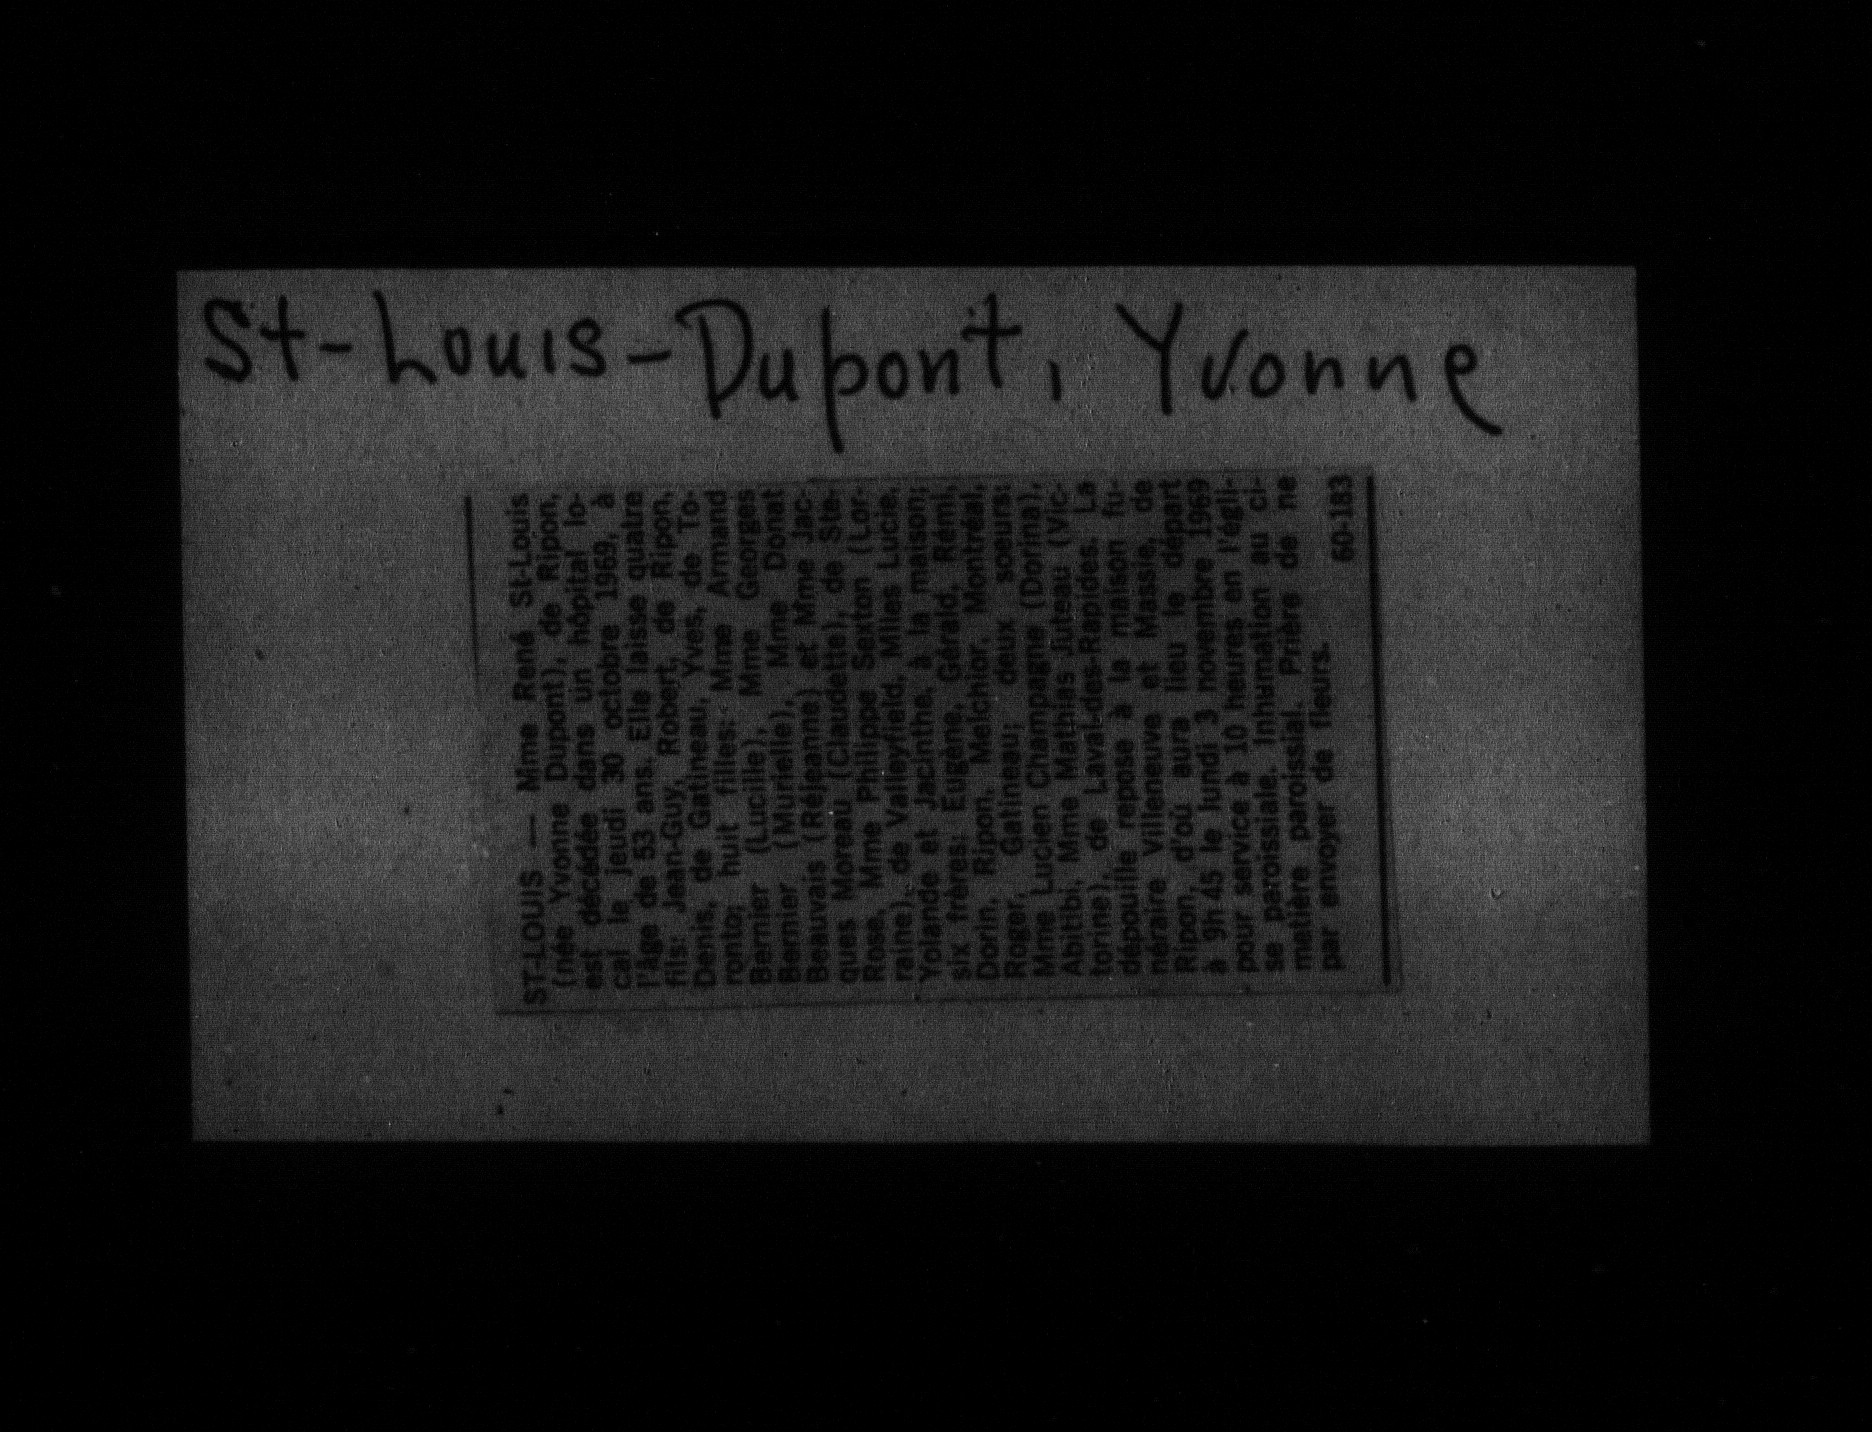 St-Louis-Dupont, Yvonne
ST-LOUIS — Mme René St-Louis
(née Yvonne Dupont), de Ripon,
est décédée dans un hôpital lo-
cal le jeudi 30 octobre 1969, à
l'âge de 53 ans. Elle laisse quatre
fils: Jean-Guy, Robert, de Ripon,
Denis, de Gatineau, Yves, de To-
ronto; huit filles: Mme Armand
Bernier (Lucille), Mme Georges
Bernier (Murielle), Mme Donat
Beauvais (Réjeanne) et Mme Jac-
ques Moreau (Claudette), de Ste-
Rose, Mme Philippe Sexton (Lor-
raine), de Valleyfield, Mlles Lucie,
Yolande et Jacinthe, à la maison;
six frères: Eugène, Gérald, Rémi,
Dorin, Ripon, Melchior, Montréal,
Roger, Gatineau; deux soeurs:
Mme Lucien Champagne (Dorina),
Abitibi, Mme Mathias Juteau (Vic-
torine), de Laval-des-Rapides. La
dépouille repose à la maison fu-
néraire Villeneuve et Massie, de
Ripon, d'où aura lieu le départ
à 9h 45 le lundi 3 novembre 1969
pour service à 10 heures en l'égli-
se paroissiale. Inhumation au ci-
metière paroissial. Prière de ne
par envoyer de fleurs.
60-183